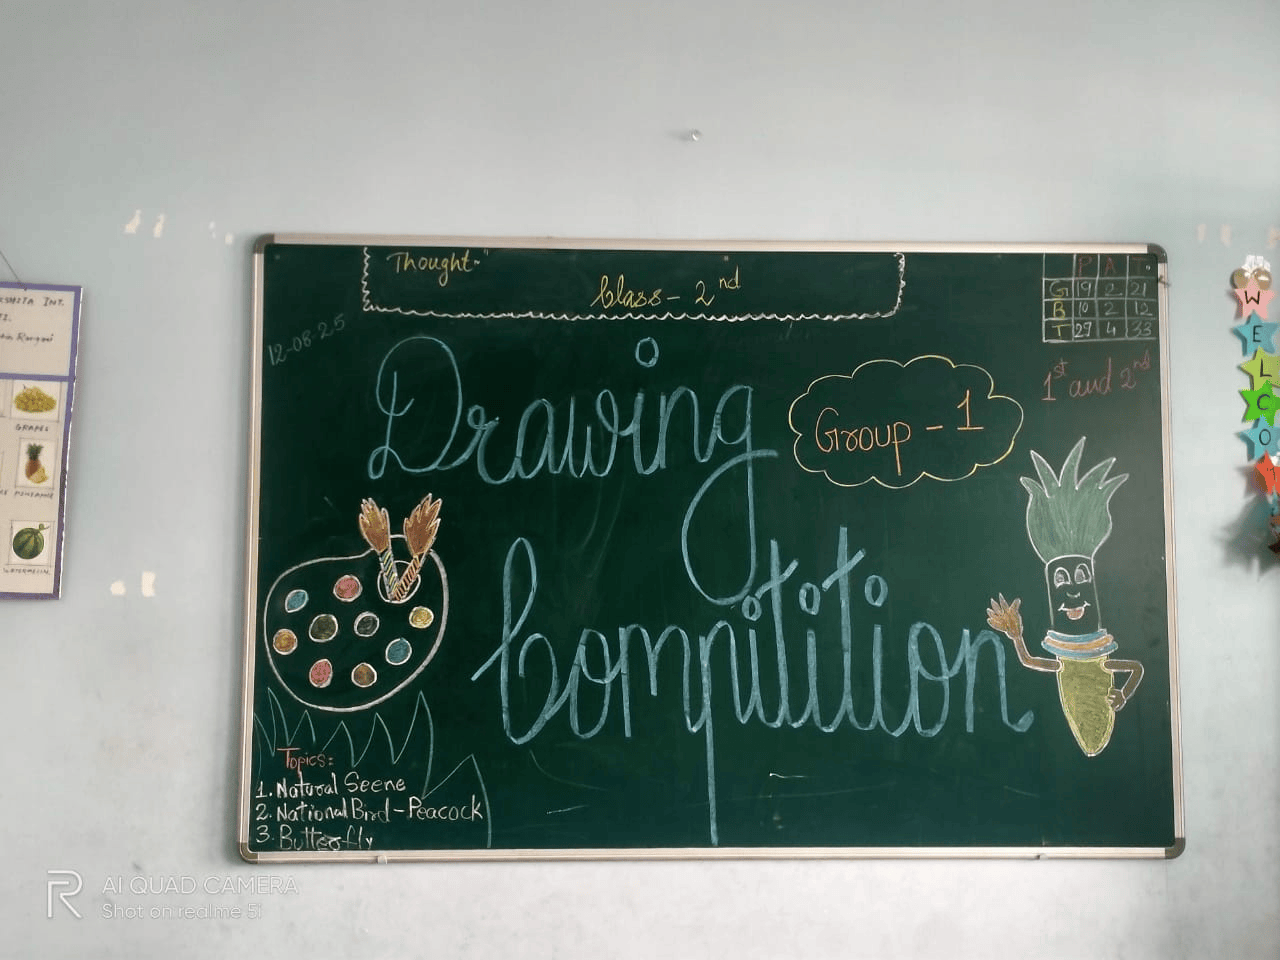 Thought~"
Class - 2nd
12-08-25
P A T
G 19 2 21
B 10 2 12
T 29 4 33
1st and 2nd
Drawing
Compitition
Group - 1
Topics:
1. Natural Seene
2. National Bird - Peacock
3. Butterfly
INT.
GRAPES
PINEAPPLE
WATERMELON
W
E
L
C
O
AI QUAD CAMERA
Shot on realme 5i